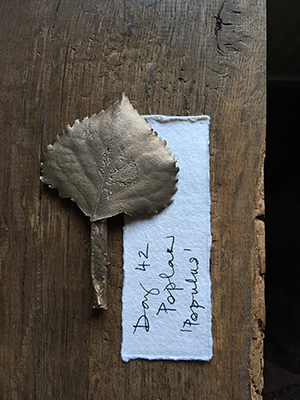 Day 42
Poplar
'Populus'